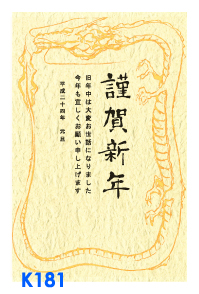 謹賀新年
旧年中は大変お世話になりました
今年も宜しくお願い申し上げます
平成二十四年 元旦
K181